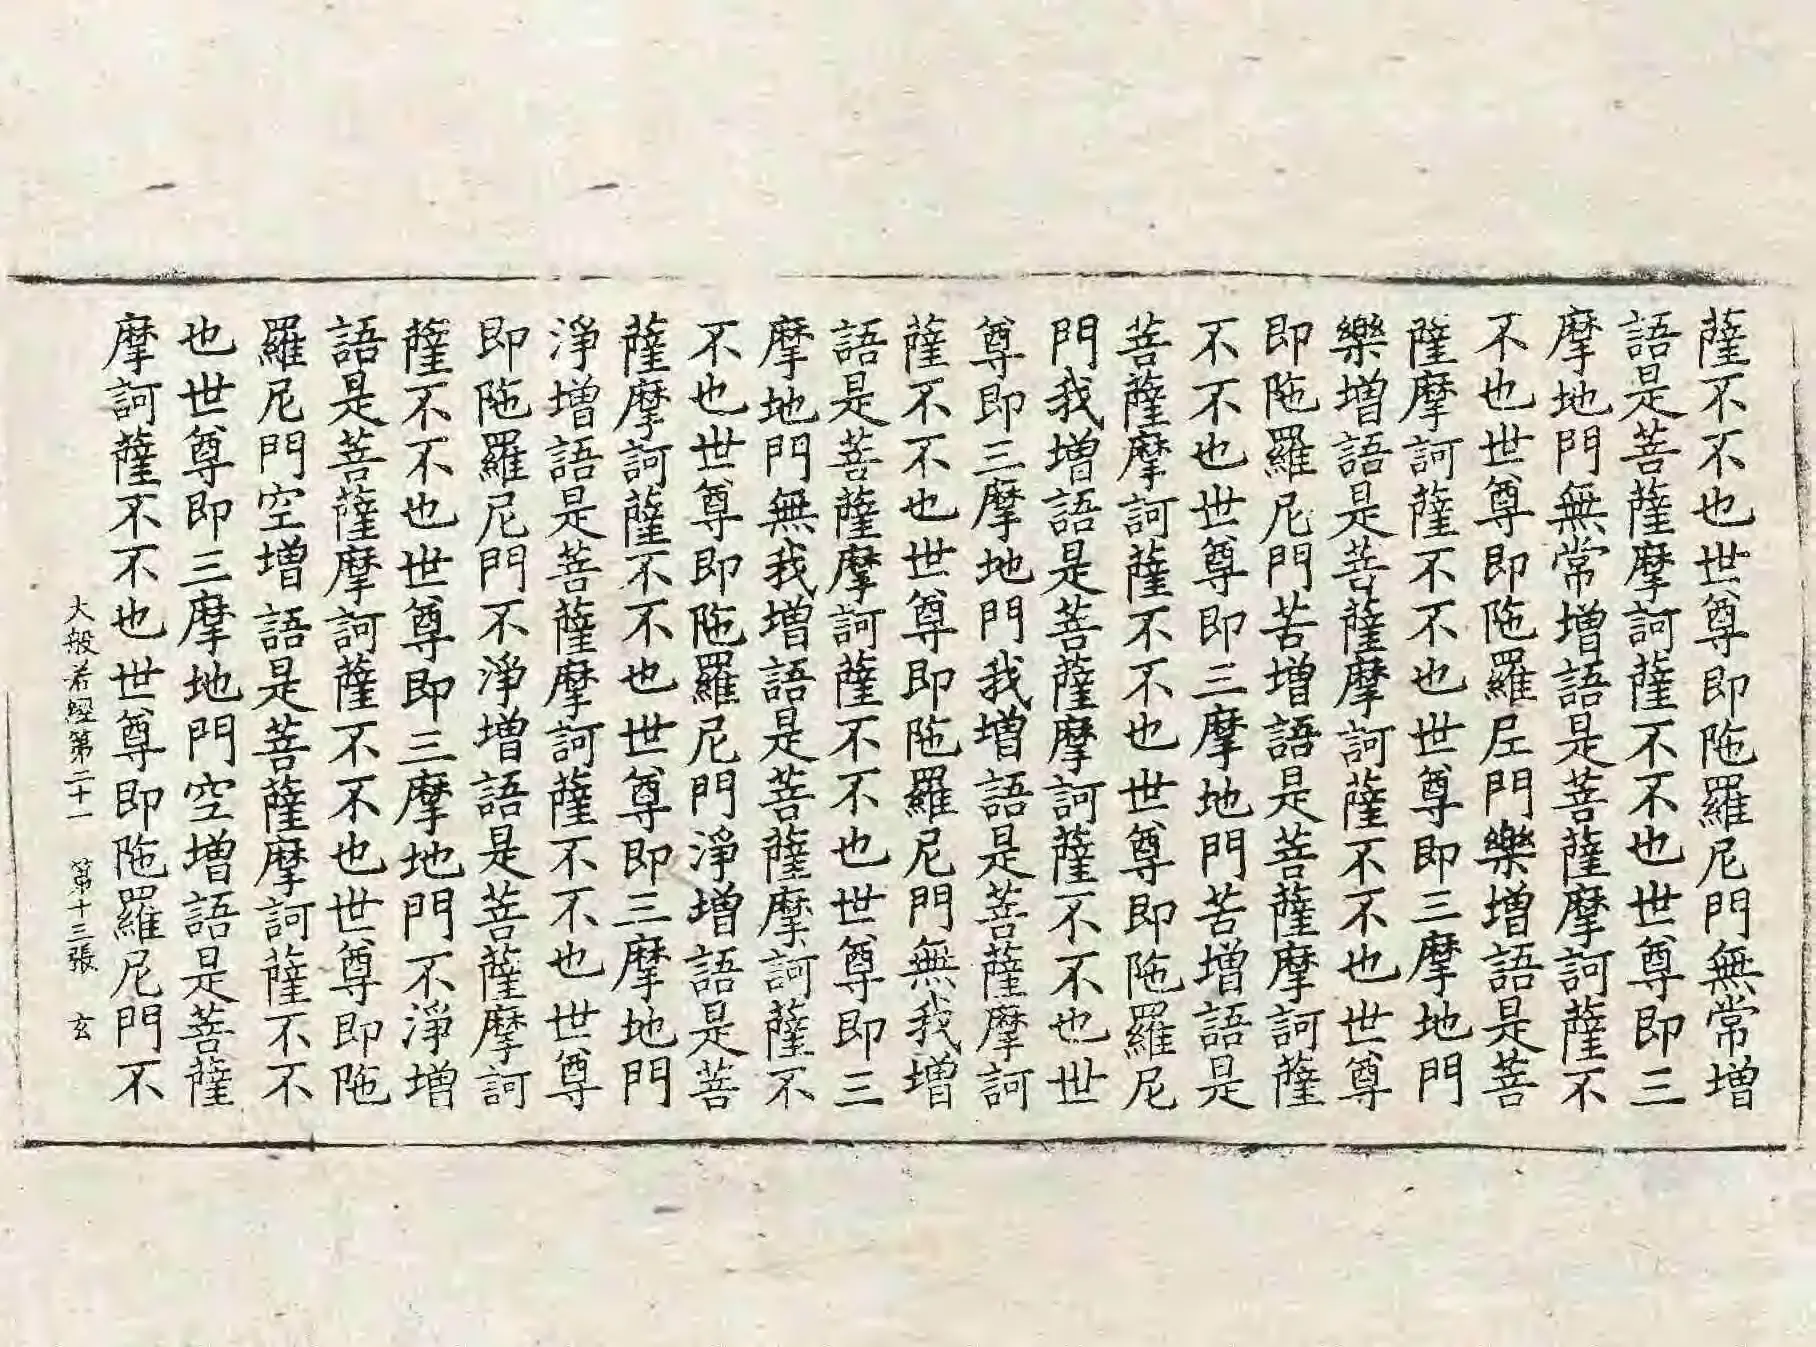 薩不不也世尊即陁羅尼門無常增
語是菩薩摩訶薩不不也世尊即三
摩地門無常增語是菩薩摩訶薩不
不也世尊即陁羅尼門樂增語是菩
薩摩訶薩不不也世尊即三摩地門
樂增語是菩薩摩訶薩不不也世尊
即陁羅尼門苦增語是菩薩摩訶薩
不不也世尊即三摩地門苦增語是
菩薩摩訶薩不不也世尊即陁羅尼
門我增語是菩薩摩訶薩不不也世
尊即三摩地門我增語是菩薩摩訶
薩不不也世尊即陁羅尼門無我增
語是菩薩摩訶薩不不也世尊即三
摩地門無我增語是菩薩摩訶薩不
不也世尊即陁羅尼門淨增語是菩
薩摩訶薩不不也世尊即三摩地門
淨增語是菩薩摩訶薩不不也世尊
即陁羅尼門不淨增語是菩薩摩訶
薩不不也世尊即三摩地門不淨增
語是菩薩摩訶薩不不也世尊即陁
羅尼門空增語是菩薩摩訶薩不不
也世尊即三摩地門空增語是菩薩
摩訶薩不不也世尊即陁羅尼門不
大般若經第二十一 第十三張 玄